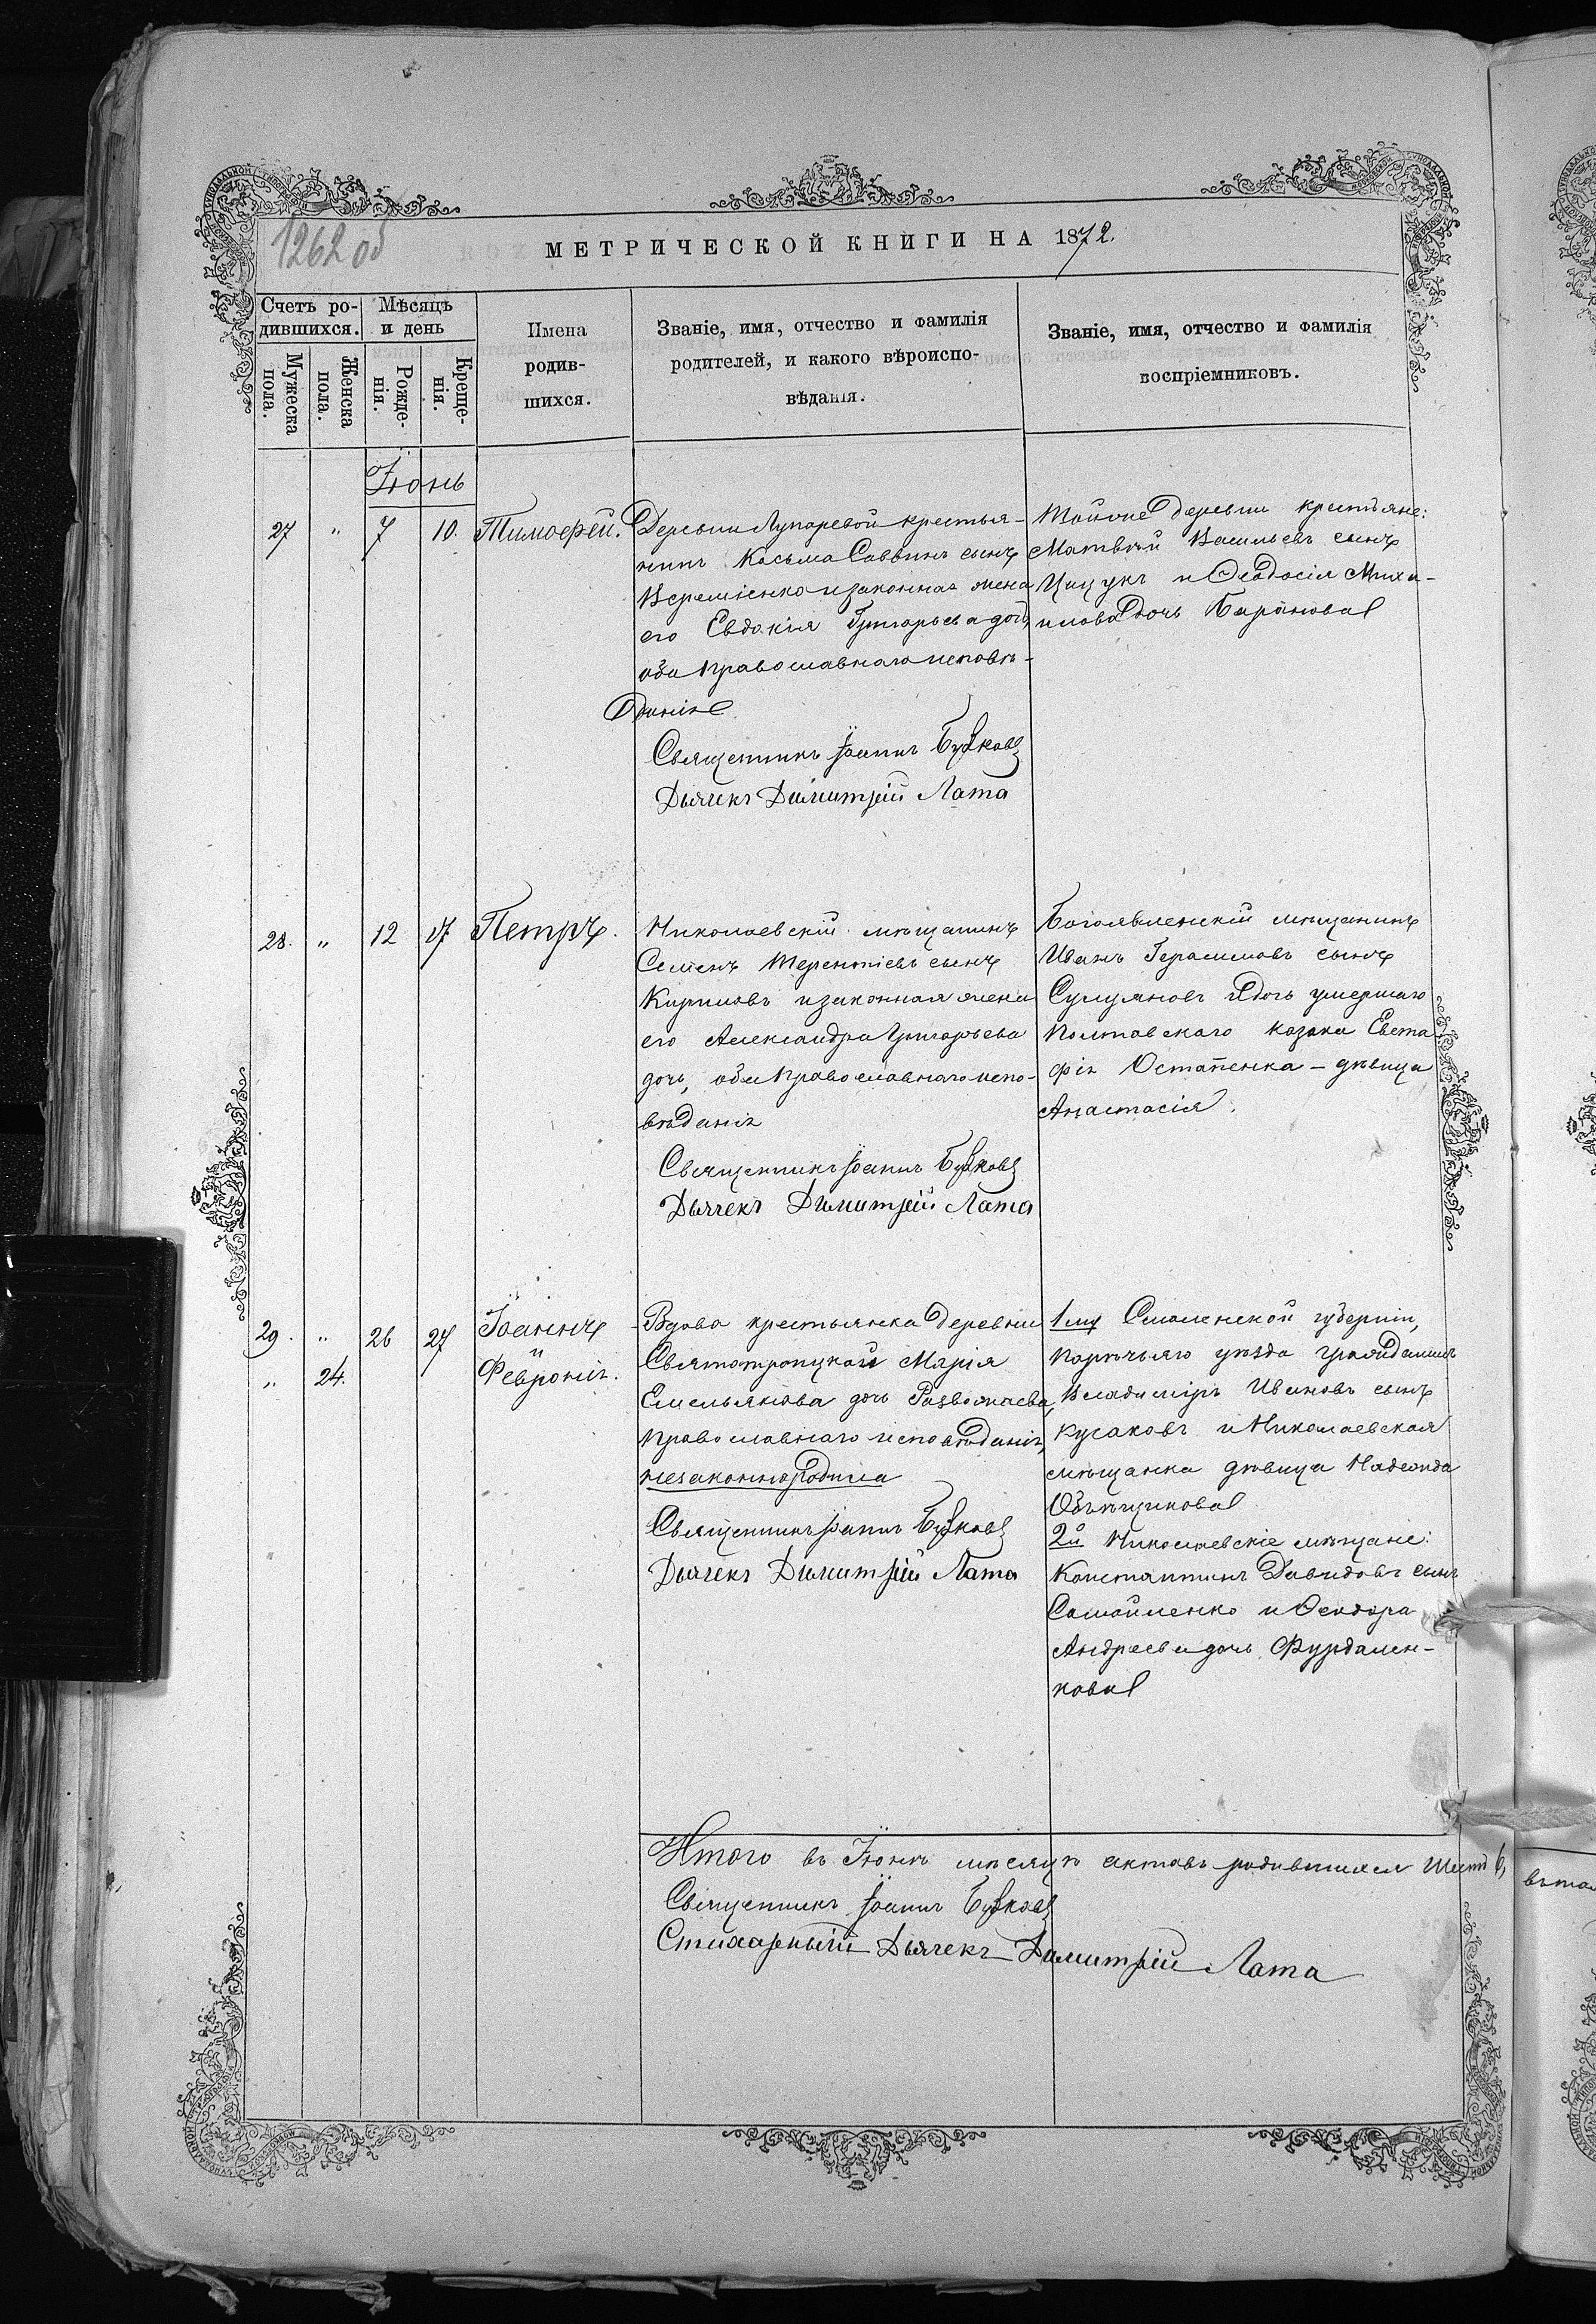 1262 об
МЕТРИЧЕСКОЙ КНИГИ НА 1872.
Счетъ ро-
дившихся.
Мѣсяцъ
и день
Мужеска
пола.
Женска
пола.
Рожде-
нія.
Креще-
нія.
Имена
родив-
шихся.
Званіе, имя, отчество и фамилія
родителей, и какого вѣроиспо-
вѣданія.
Званіе, имя, отчество и фамилія
воспріемниковъ.
Іюнь
27 " 7 10. Тимофей.
Деревни Лупаревой крестья-
нинъ Косьма Саввинъ сынъ
и законная жена
его Евдокія Григорьева дочь,
оба православнаго исповѣ-
данія
Священникъ Іоаннъ
Дьячекъ Димитрій Лата
Тойже деревни крестьяне:
Матвѣй Васильевъ сынъ
Цицукъ и Ѳеодосія Миха-
илова дочь Баранова
28. " 12 17 Петръ.
Николаевскій мѣщанинъ
Семенъ Терентіевъ сынъ
Кириловъ и законная жена
его Александра Григорьева
дочь, оба православнаго испо-
вѣданія
Священникъ Іоаннъ
Дьячекъ Димитрій Лата
Богоявленскій мѣщанинъ
Иванъ Герасимовъ сынъ
и дочь умершаго
Полтавскаго козака Евста
фія Остапенка – дѣвица
Анастасія.
29. " 26 27 Іоаннъ
и
" 24. Февронія.
Вдова крестьянка деревни
Святотроицкой Марія
Емельянова дочь Развожаева,
православнаго исповѣданія,
незаконнородила
Священникъ Іоаннъ
Дьячекъ Димитрій Лата
1му Смоленской губерніи,
Порѣчьяго уѣзда гражданинъ
Владиміръ Ивановъ сынъ
Кусаковъ и Николаевская
мѣщанка дѣвица Надежда
Объѣщикова
2й Николаевскіе мѣщане:
Константинъ Давидовъ сынъ
Самойленко и Ѳеодора
Андреева дочь Фурдален-
кова
Итого въ Іюнѣ мѣсяцѣ актовъ родившихся шесть 6,
Священникъ Іоаннъ
Стихарный Дьячекъ Димитрій Лата